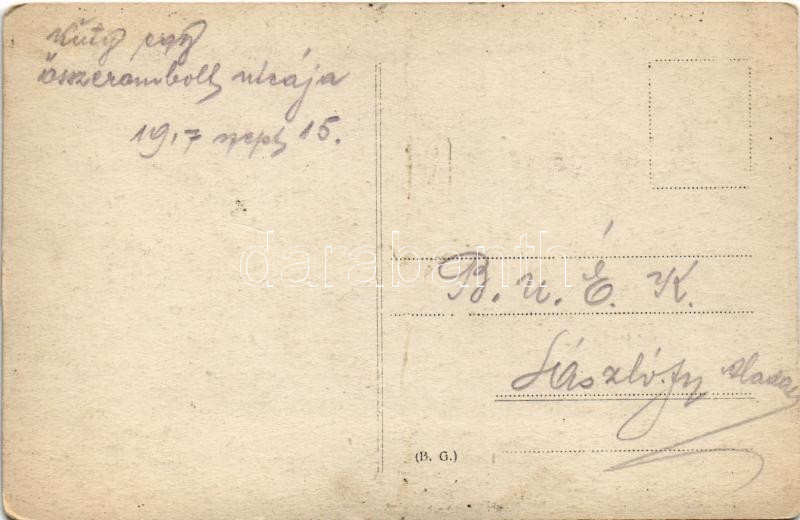 Kuty egy
összerombolt utcája
1917 szept 15.
B. ú. É. K.
Lászlófy Aladár
(B. G.)
darabanth